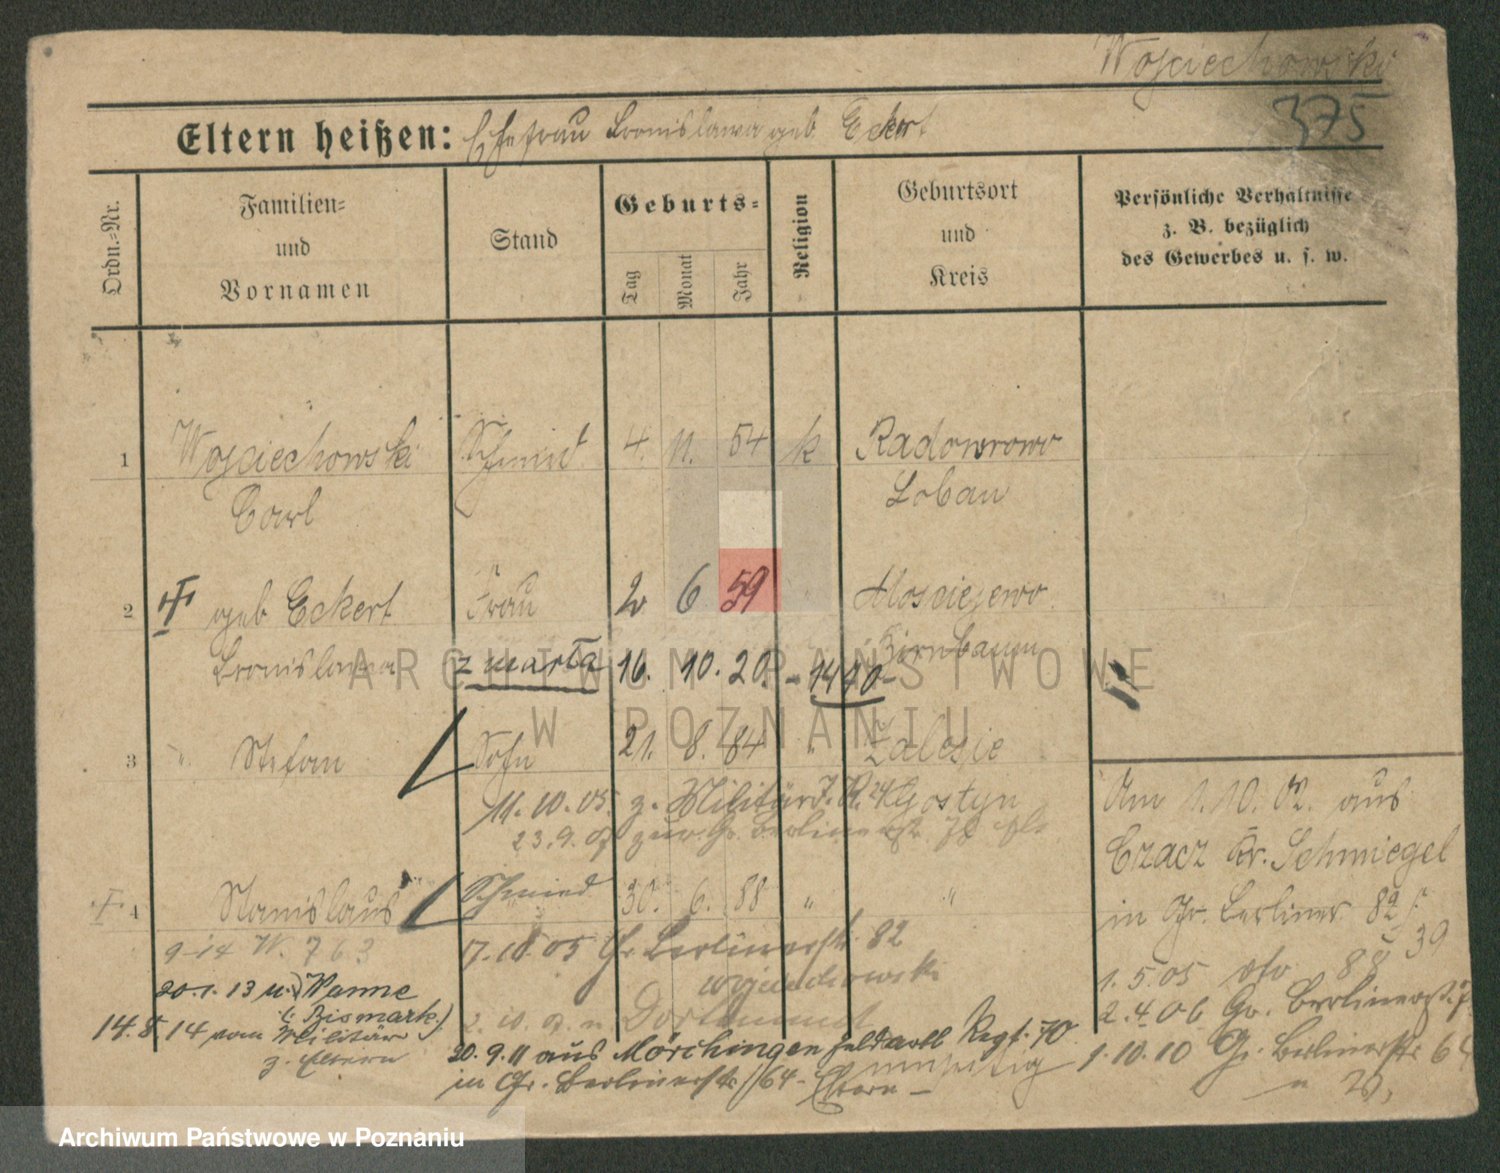 Wojciechowski
375
Eltern heißen: Ehefrau Bronislawa geb Eckert
Ordn.=Nr.
Familien= und Vornamen
Stand
Geburts=
Tag
Monat
Jahr
Religion
Geburtsort und Kreis
Persönliche Verhältnisse z. B. bezüglich des Gewerbes u. s. w.
1 Wojciechowski Schmied 4. 11. 54 k Radowrowo
Carl Lobau
2 geb Eckert Frau 2 6 59 " Mosciejewo
Bronislawa Birnbaum
zmarła 16. 10. 20. - 1410-
3 " Stefan Sohn 21. 8. 84 " Zalesie
11.10.05. z. Militär J. R. Gostyn
23.9.07 zur Gr. Berlinerstr.
4 Stanislaus Schmied 30. 6. 88 " "
9-14 W. 763
17.10.05 Gr. Berlinerstr. 82
Wojciechowski
20.1.13 u. Wanne
(: Bismark.)
14.8.14 vom Militär
z. Eltern
2.10.07. n. Dortmund
20.9.11 aus Mörchingen Feldartl Regt. 70
in Gr. Berlinerstr. 64 - Eltern -
Am 1.10.02. aus
Czacz Kr. Schmiegel
in Gr. Berliner 82
39
1.5.05 dto 88
2.4.06 Gr. Berlinerstr.
1.10.10 Gr. Berlinerstr 64
ARCHIWUM PAŃSTWOWE
W POZNANIU
Archiwum Państwowe w Poznaniu